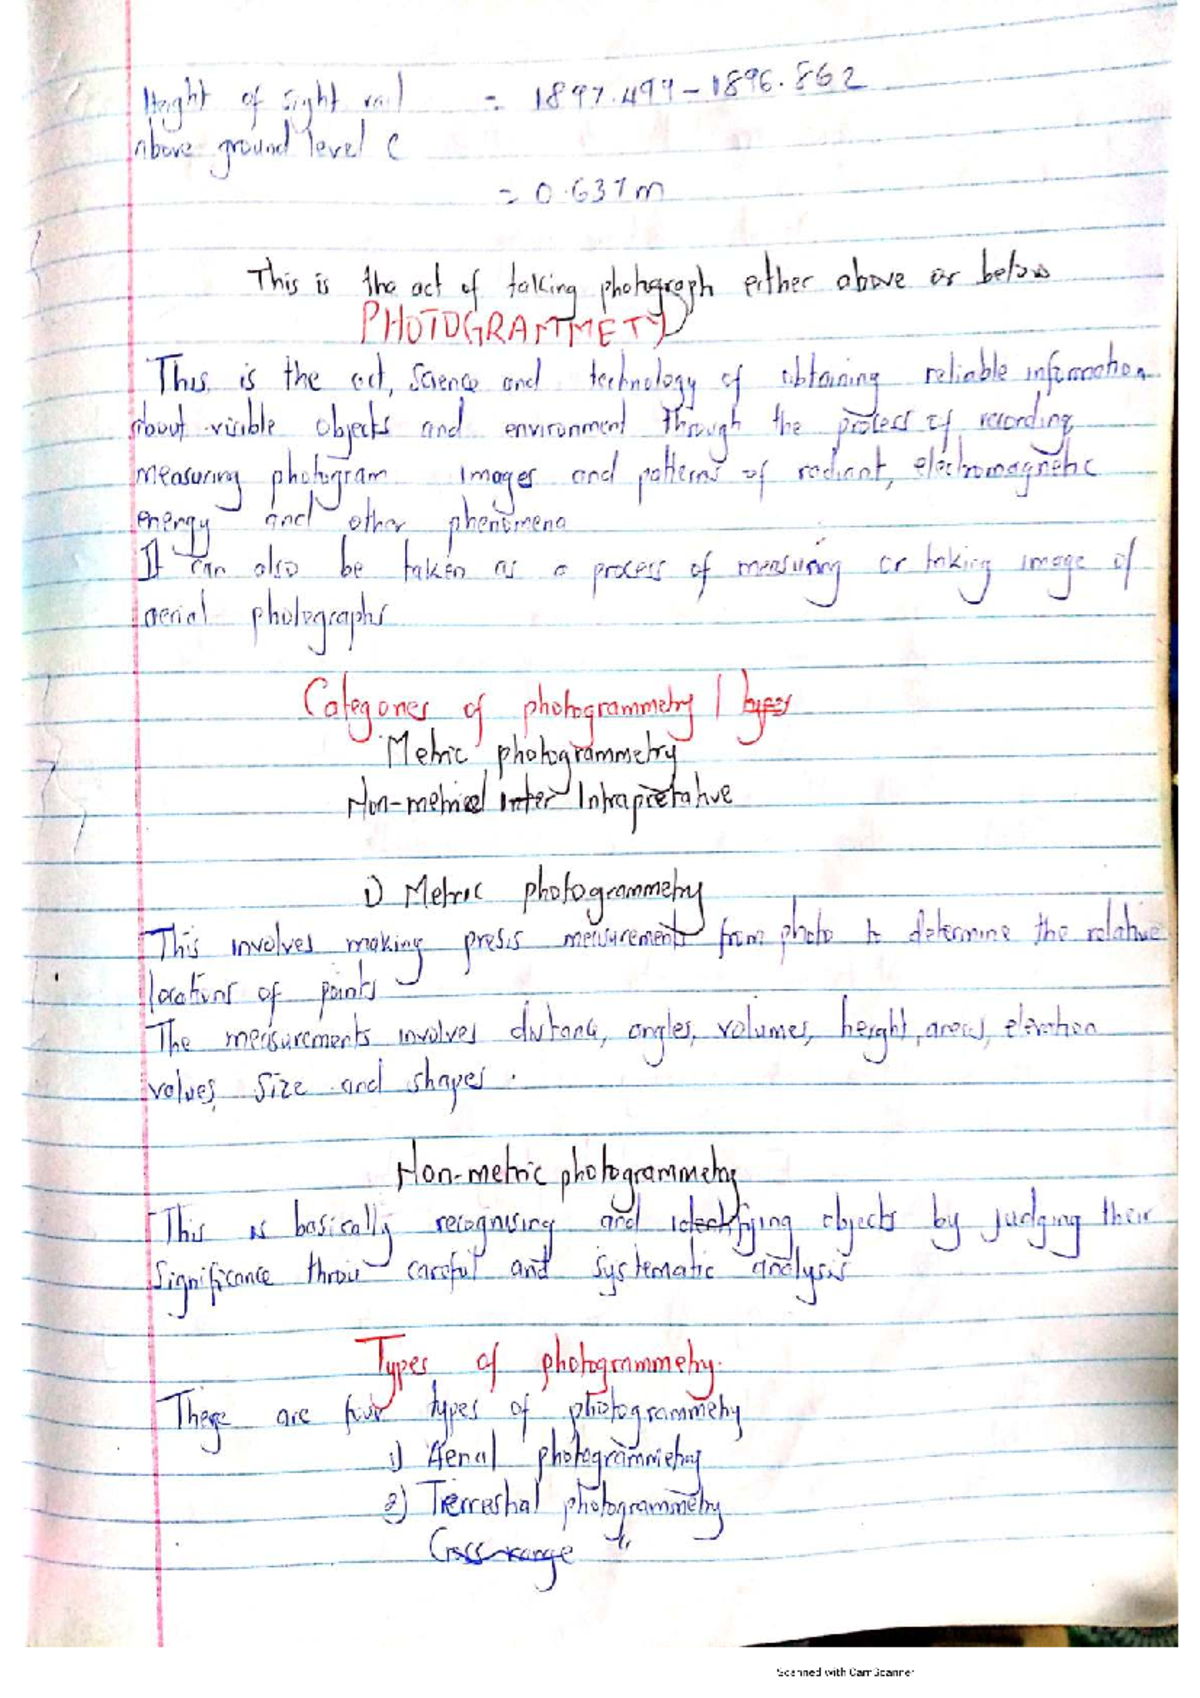 Height of sight rail = 1897.499 - 1896.862
above ground level C
= 0.637m
This is the act of taking photograph either above or below
PHOTOGRAMMETY
This is the act, Science and technology of obtaining reliable information
about visible objects and environment through the process of recording
measuring photogram images and patterns of radiant, electromagnetic
energy and other phenomena
It can also be taken as a process of measuring or taking image of
aerial photographs
Categories of photogrammetry / types
Metric photogrammetry
Non-metrical inter Intrapretative
1) Metric photogrammetry
This involves making presis measurements from photo to determine the relative
locations of points
The measurements involves distance, angles, volumes, height, areas, elevation
values, size and shapes.
Non-metric photogrammetry
This is basically recognising and identifying objects by judging their
significance throu careful and systematic analysis
Types of photogrammetry.
There are four types of photogrammetry
1) Aerial photogrammetry
2) Terrestrial photogrammetry
Closs range
Scanned with CamScanner